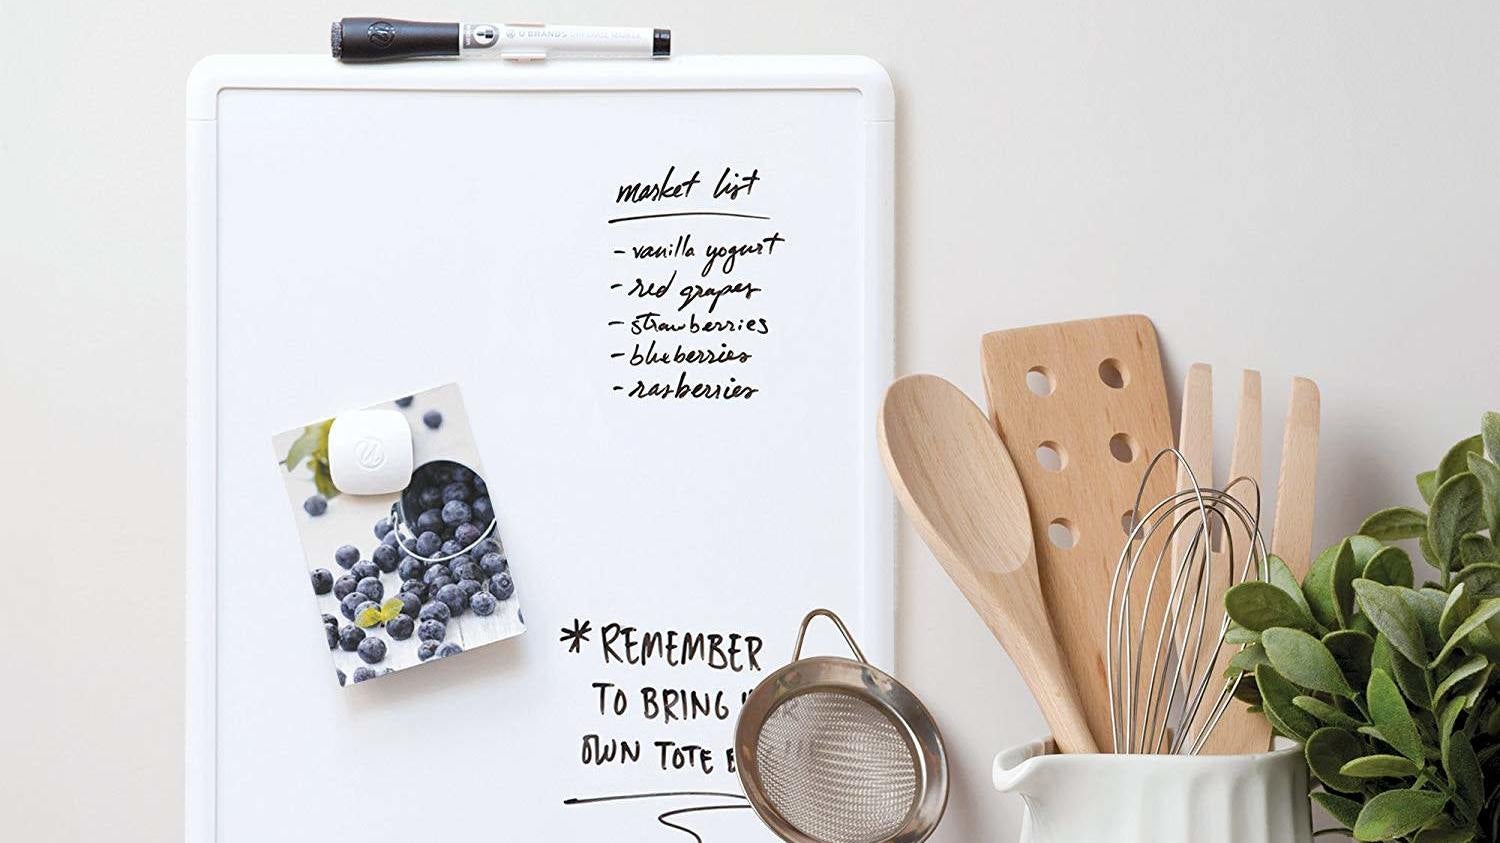 U BRANDS DRY ERASE MARKER
market list
- vanilla yogurt
- red grapes
- strawberries
- blueberries
- rasberries
* REMEMBER
TO BRING
OWN TOTE